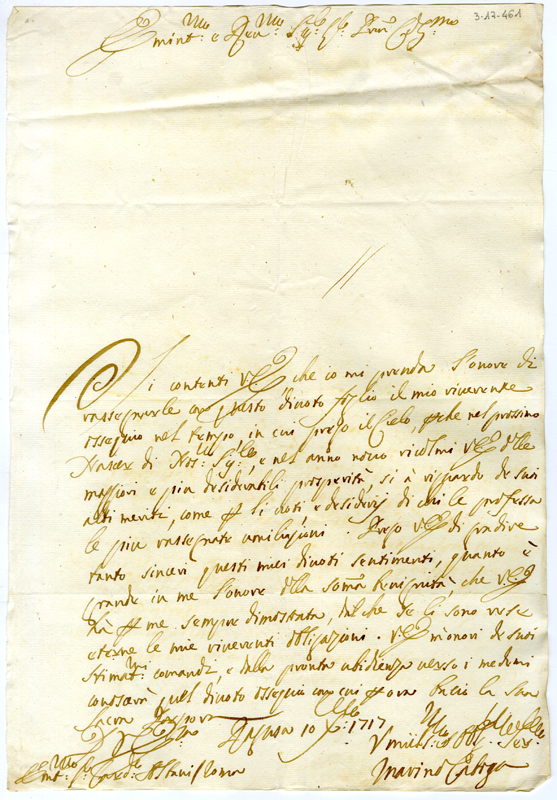 3-17-461
Emint:mo e Rev:mo Sig:r
Si contenti V. E. che io mi prenda l'onore di
rassegnarle con questo divoto foglio il mio riverente
ossequio nel tempo, in cui prego il Cielo, che nel prossimo
Nascere di Nos:, e nel anno novo ricolmi V. E. delle
maggiori e piu desiderabili prosperità, si à riguardo de suoi
alti meriti, come li voti e desiderij di chi le professa
le piu rassegnate umiliazioni. Prego V. E. di gradire
tanto sinceri questi miei divoti sentimenti, quanto è
grande in me l'onore della somma benignità, che V. E.
hà per me sempre dimostrata, del che se li sono rese
eterne le mie riverenti obligazioni. V. E. m'onori de suoi
Stimat:mi comandi, e dalla pronta ubidienza verso i medemi
conoscerà quel divoto ossequio con cui ora bacio la sua
Sacra Porpora
Ragusa 10 Xbre: 1717
Emint:mo Sr Card:le Roma
Marino